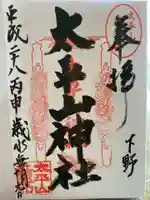 奉拝
下野
太平山神社
平成二十八丙申歳水無月
太平山